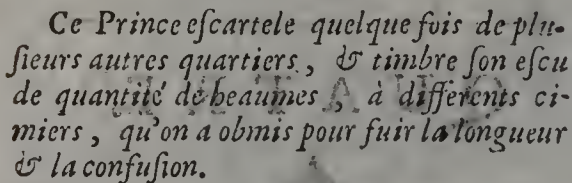 Ce Prince eſcartele quelque fois de plu-
ſieurs autres quartiers, & timbre ſon eſcu
de quantité de heaumes, à differents ci-
miers, qu'on a obmis pour fuir la longueur
& la confuſion.